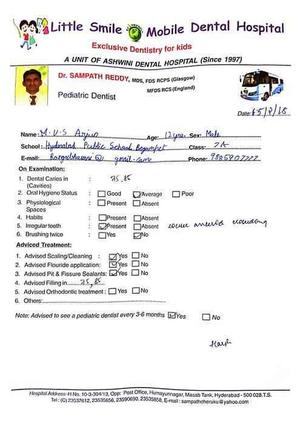 Little Smile Mobile Dental Hospital
Exclusive Dentistry for kids
A UNIT OF ASHWINI DENTAL HOSPITAL (Since 1997)
Dr. SAMPATH REDDY, MDS, FDS RCPS (Glasgow)
MFDS RCS (England)
Pediatric Dentist
Date:
Name: M.V.S Arjun Age: 12 years Sex: Male
School: Hyderabad Public School, Begumpet Class: 7A
E-mail: gmail.com Phone:
On Examination:
1. Dental Caries in : 75, 85
(Cavities)
2. Oral Hygiene Status : Good Average Poor
3. Physiological : Present Absent
Spaces
4. Habits : Present Absent
5. Irregular teeth : Present Absent crowding
6. Brushing twice : Yes No
Adviced Treatment:
1. Advised Scaling/Cleaning : Yes No
2. Advised Flouride application: Yes No
3. Advised Pit & Fissure Sealants: Yes No
4. Advised Filling in 75, 85
5. Advised Orthodontic treatment : Yes No
6. Others:
Note: Advised to see a pediatric dentist every 3-6 months Yes No
Hospital Address: H.No. 10-3-304/13, Opp: Post Office, Humayunnagar, Masab Tank, Hyderabad - 500 028 T.S.
Tel: (O) 23337612, 23535656, 23590690, 23535858, E-mail : sampathcheruku@yahoo.com